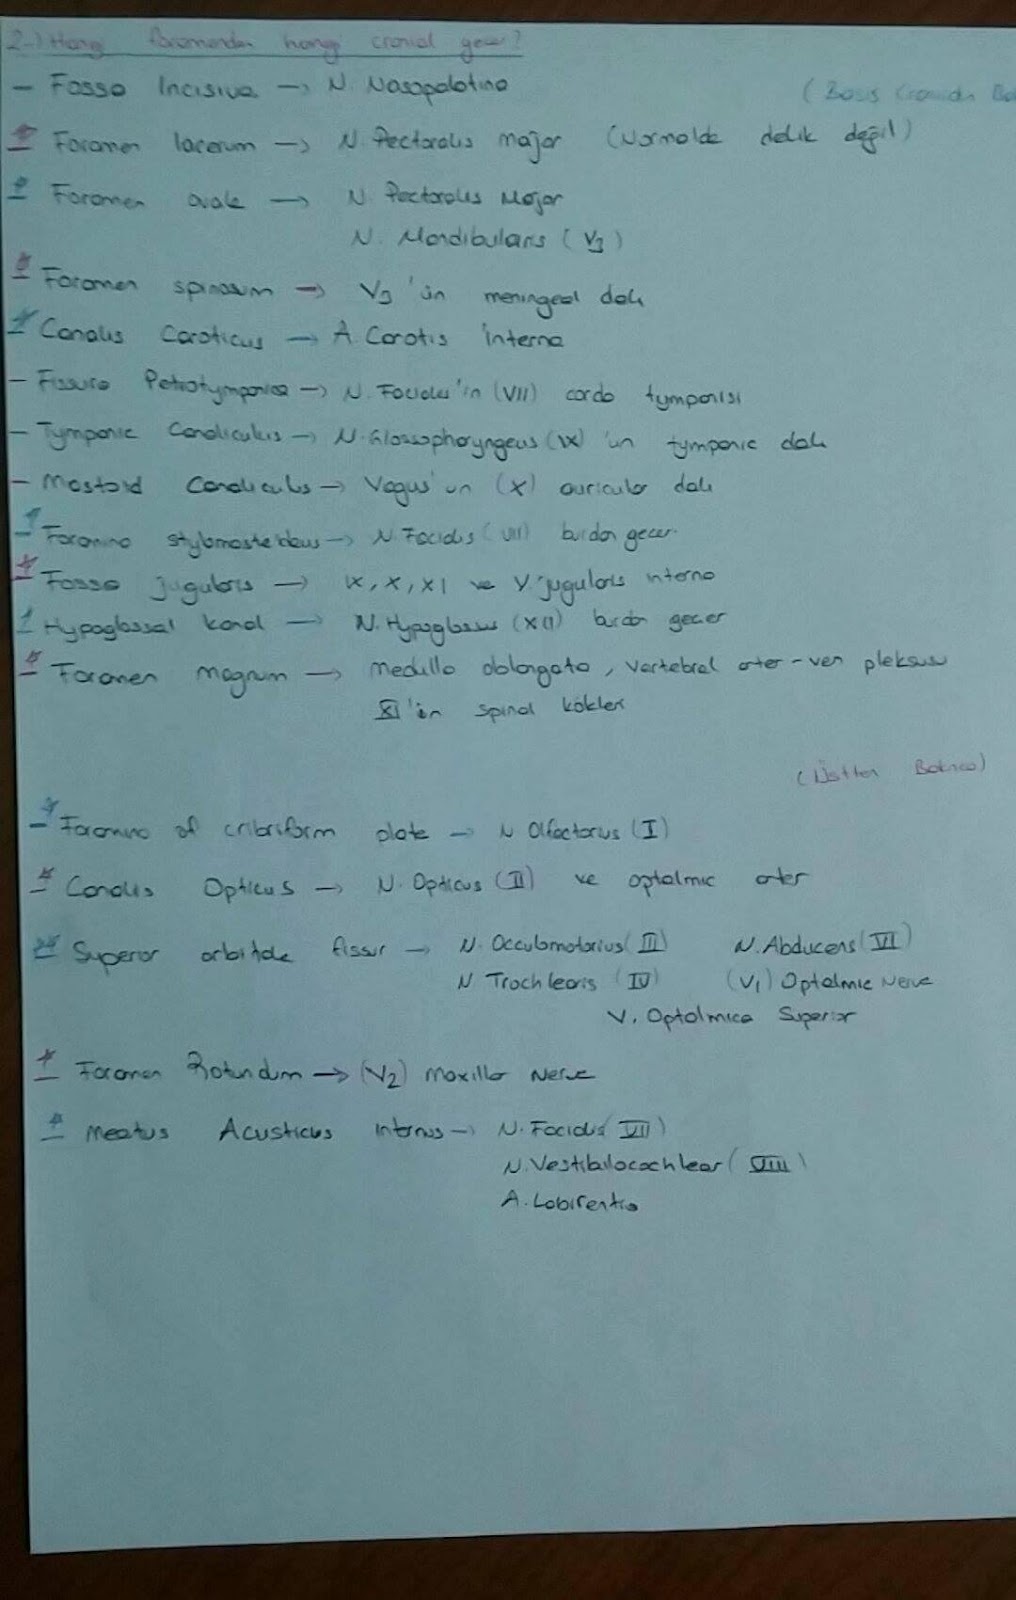 2-) Hangi foramenden hangi cranial geçer?
- Fossa Incisiva → N. Nasopalatina
(Basis Craniiden
* Foramen lacerum → N. Pectoralis major (Normalde delik değil)
* Foramen ovale → N. Pectoralis Major
N. Mandibularis (V3)
* Foramen spinosum → V3'ün meningeal dalı
* Canalis Caroticus → A. Carotis interna
- Fissura Petrotympanica → N. Facialis'in (VII) corda tympanisi
- Tympanic Canaliculus → N. Glossopharyngeus (IX)'un tympanic dalı
- Mastoid Canaliculus → Vagus'un (X) auricular dalı
* Foramina stylomasteideus → N. Facialis (VII) burdan geçer.
* Fossa jugularis → IX, X, XI ve V. jugularis interna
* Hypoglossal kanal → N. Hypoglossus (XII) burdan geçer
* Foramen magnum → medulla oblongata, vertebral arter-ven pleksusu
XI'in spinal kökleri
(Üstten Bakınca)
* Foramina of cribriform plate → N Olfactorius (I)
* Canalis Opticus → N. Opticus (II) ve optalmic arter
* Superior orbitale fissur → N. Occulomotorius (III) N. Abducens (VI)
N. Trochlearis (IV) (V1) Optalmic Nerve
V. Optalmica Superior
* Foramen Rotundum → (V2) maxillar Nerve
* Meatus Acusticus internus → N. Facialis (VII)
N. Vestibulocochlear (VIII)
A. Labirentia